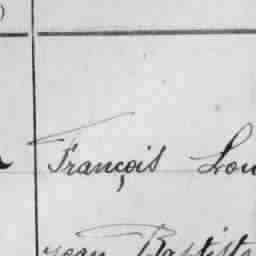 François Lou
Jean Baptiste